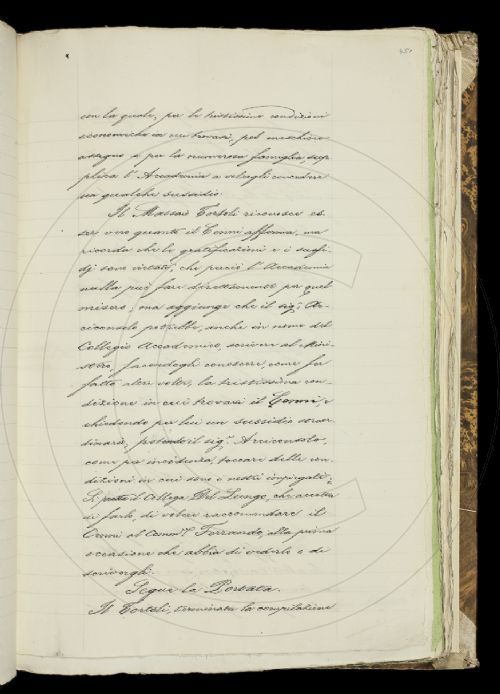 451
con la quale, per le tristissime condizioni
economiche in cui trovasi, pel meschino
assegno e per la numerosa famiglia, sup-
plica l'Accademia a volergli concedere
un qualche sussidio.
Il Massaio Tortoli riconosce es-
ser vero quanto il Cenni afferma, ma
ricorda che le gratificazioni e i sussi-
dj sono vietati, che perciò l'Accademia
nulla può fare direttamente per quel
misero; ma aggiunge che il sig.r Ar-
ciconsolo potrebbe, anche in nome del
Collegio Accademico, scrivere al Mini-
stero, facendogli conoscere, come ha
fatto altre volte, la tristissima con-
dizione in cui trovasi il Cenni, e
chiedendo per lui un sussidio straor-
dinario, potendo il sig.r Arciconsolo,
come per incidenza, toccare delle con-
dizioni in cui sono i nostri impiegati;
Si prega il Collega Del Lungo, che accetta
di farlo, di voler raccomandare il
Cenni al Comm.r Ferrando, alla prima
occasione che abbia di vederlo o di
scrivergli.
Segue la Portata.
Il Tortoli, terminata la compilazione